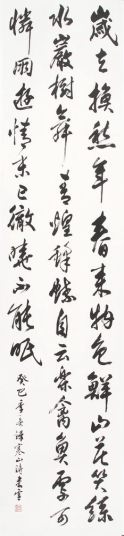 歲去換愁年春来物色鮮山花笑綠
水巖樹舞青煌蜂蝶自云樂禽魚更可
憐朋遊情未已徹曉不能眠
癸巳季冬 寒山詩